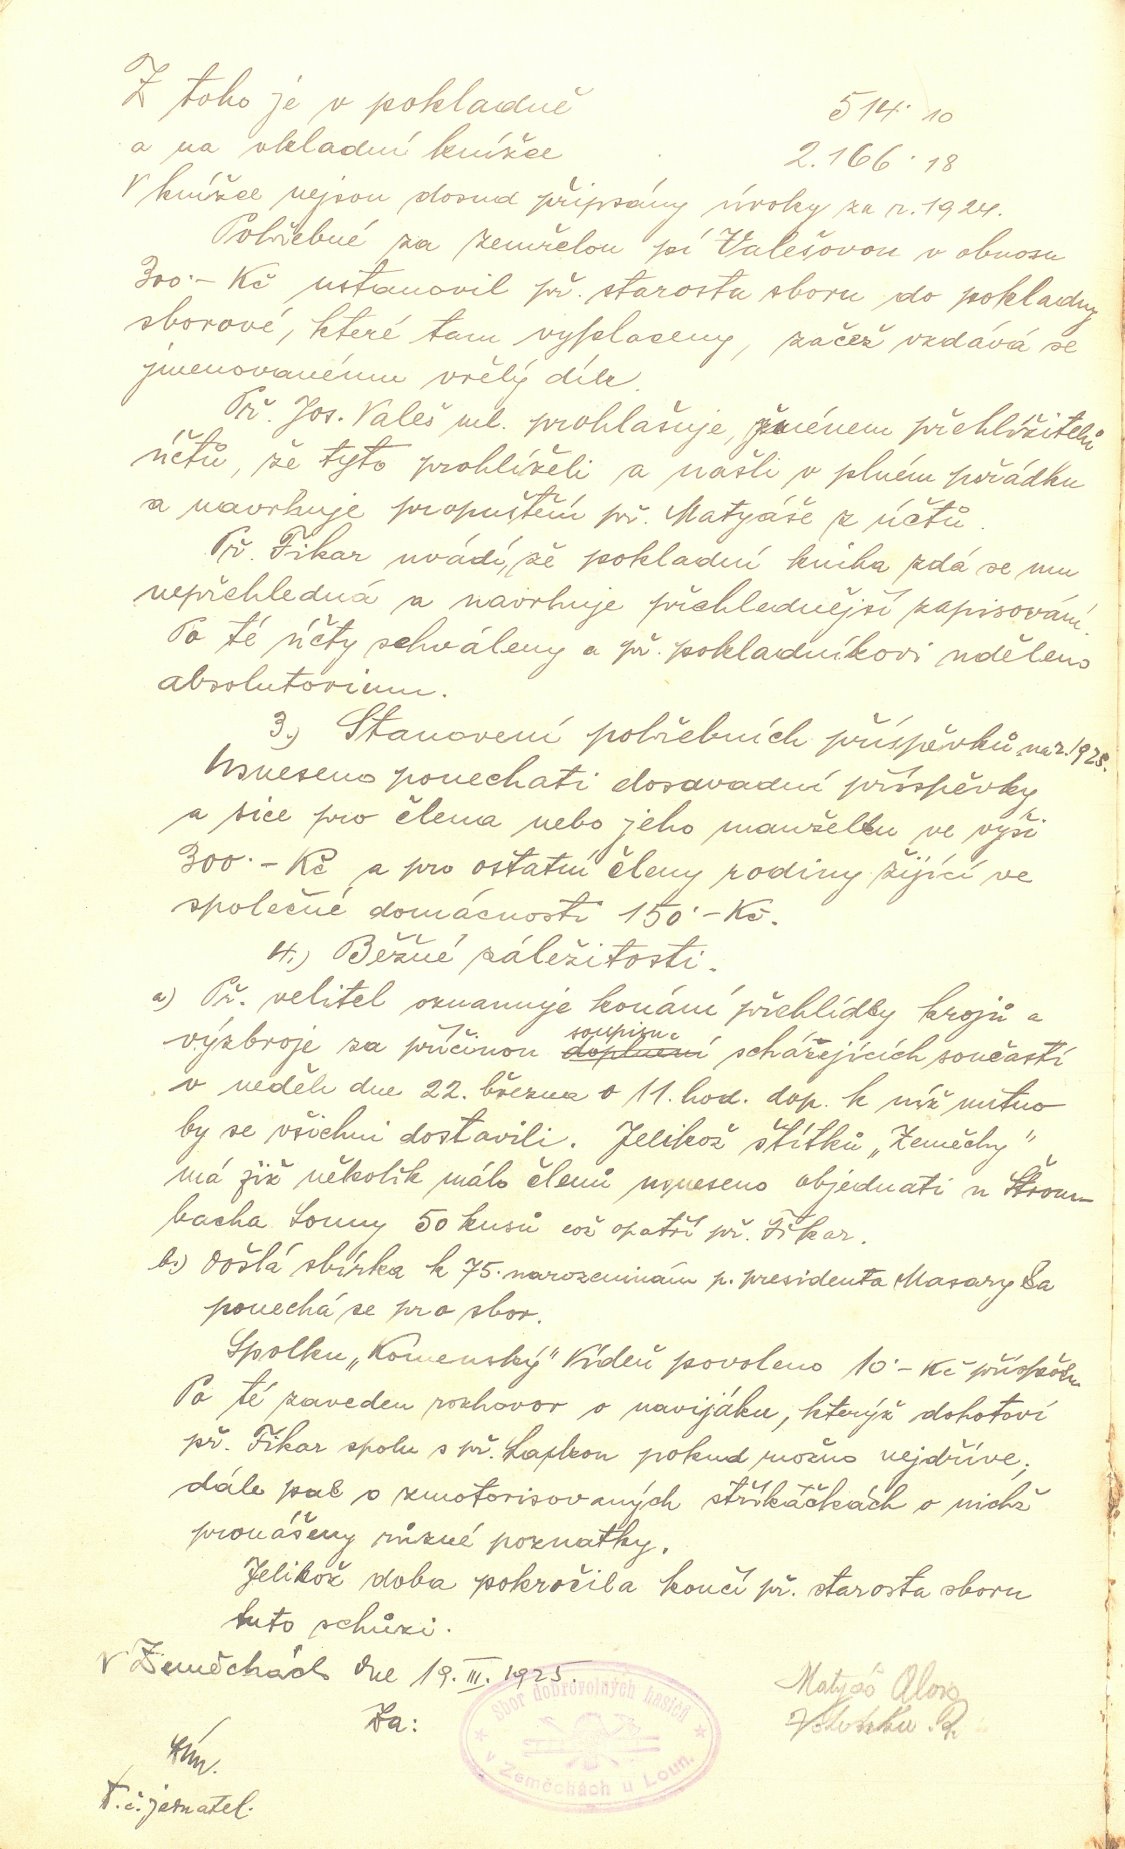 Z toho je v pokladně 514·10
a na vkladní knížce 2.166·18
V knížce nejsou dosud připsány úroky za r. 1924.
Pohřebné za zemřelou pí Valešovou v obnosu
300·– Kč ustanovil př. starosta sboru do pokladny
sborové, které tam vyplaceny, začež vzdává se
jmenovanému vřelý dík.
Př. Jos. Valeš ml. prohlašuje, jménem přehlížitelů
účtů, že tyto prohlíželi a našli v plném pořádku
a navrhuje propuštění př. Matyáše z účtů.
Př. Fikar uvádí, že pokladní kniha zdá se mu
nepřehledná a navrhuje přehlednější zapisování.
Po té účty schváleny a př. pokladníkovi uděleno
absolutorium.
3.) Stanovení pohřebních příspěvků na r. 1925.
Usneseno ponechati dosavadní příspěvky
a sice pro člena nebo jeho manželku ve výši
300·– Kč a pro ostatní členy rodiny žijící ve
společné domácnosti 150·– Kč.
4.) Běžné záležitosti.
a) Př. velitel oznamuje konání přehlídky krojů a
výzbroje za příčinou doplnění soupisu scházejících součástí
v neděli dne 22. března o 11. hod. dop. k níž nutno
by se všichni dostavili. Jelikož štítků „Zeměchy"
má již několik málo členů usneseno objednati u Štrom-
bacha Louny 50 kusů což opatří př. Fikar.
b.) Došlá sbírka k 75. narozeninám p. presidenta Masaryka
ponechá se pro sbor.
Spolku „Komenský" Vídeň povoleno 10·– Kč příspěvku
Po té zaveden rozhovor o navijáku, kterýž dohotoví
př. Fikar spolu s př. Lapkou pokud možno nejdříve,
dále pak o zmotorisovaných stříkáčkách o nichž
pronášeny různé poznatky.
Jelikož doba pokročila končí př. starosta sboru
tuto schůzi.
V Zeměchách dne 19. III. 1925.
Za:
Sbor dobrovolných hasičů
v Zeměchách u Loun.
Matyáš Alois
t. č. jednatel.